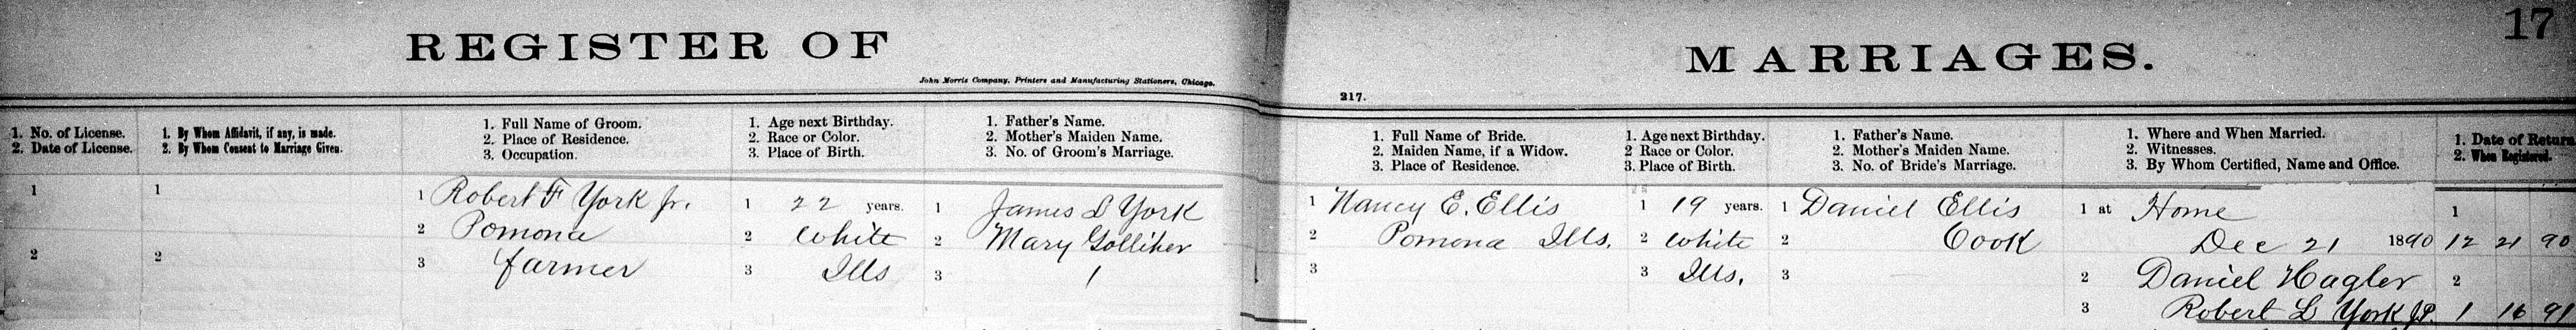 REGISTER OF MARRIAGES.
17
John Morris Company, Printers and Manufacturing Stationers, Chicago.
217.
1. No. of License.
2. Date of License.
1. By Whom Affidavit, if any, is made.
2. By Whom Consent to Marriage Given.
1. Full Name of Groom.
2. Place of Residence.
3. Occupation.
1. Age next Birthday.
2. Race or Color.
3. Place of Birth.
1. Father's Name.
2. Mother's Maiden Name.
3. No. of Groom's Marriage.
1. Full Name of Bride.
2. Maiden Name, if a Widow.
3. Place of Residence.
1. Age next Birthday.
2 Race or Color.
3. Place of Birth.
1. Father's Name.
2. Mother's Maiden Name.
3. No. of Bride's Marriage.
1. Where and When Married.
2. Witnesses.
3. By Whom Certified, Name and Office.
1. Date of Return
2. When Registered.
1
2
1
2
1 Robert F York Jr.
2 Pomona
3 farmer
1 22 years.
2 White
3 Ills
1 James L York
2 Mary Golliher
3 1
1 Nancy E. Ellis
2 Pomona Ills.
3
1 19 years.
2 White
3 Ills.
1 Daniel Ellis
2 Cook
3
1 at Home
Dec 21 1890
2 Daniel Hagler
3 Robert L York J.P.
1
12 21 90
2
1 16 91